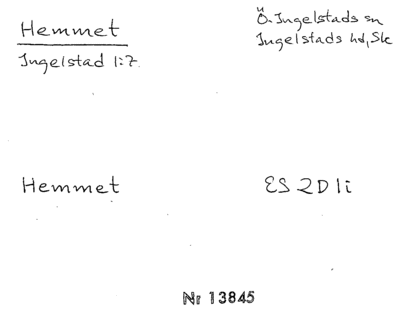 Hemmet
Ingelstad 1:7.
Ö. Ingelstads sn
Ingelstads hd, Sk
Hemmet
ES 2D 1i
Nr 13845